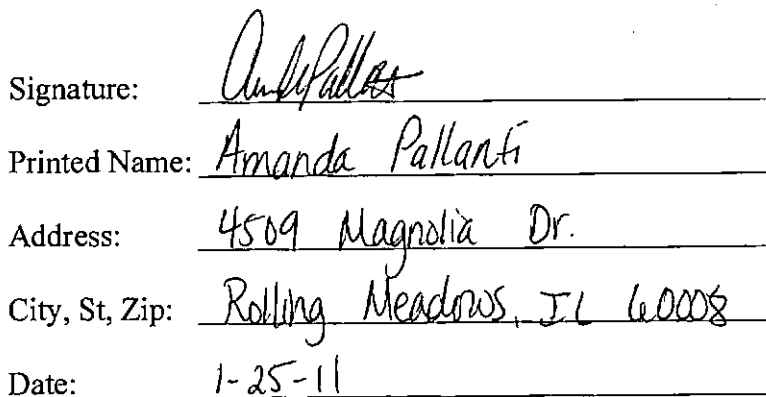 Signature:
Printed Name: Amanda Pallanti
Address: 4509 Magnolia Dr.
City, St, Zip: Rolling Meadows, IL 60008
Date: 1-25-11